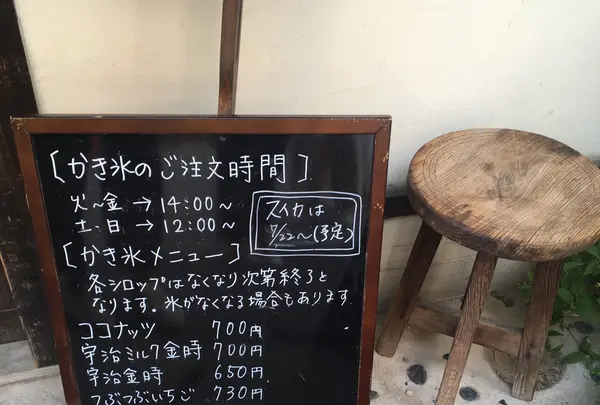 [かき氷のご注文時間]
火～金 → 14:00～
土・日 → 12:00～
スイカは
7/22～(予定)
[かき氷メニュー]
各シロップはなくなり次第終了と
なります。氷がなくなる場合もあります
ココナッツ 700円
宇治ミルク金時 700円
宇治金時 650円
つぶつぶいちご 730円